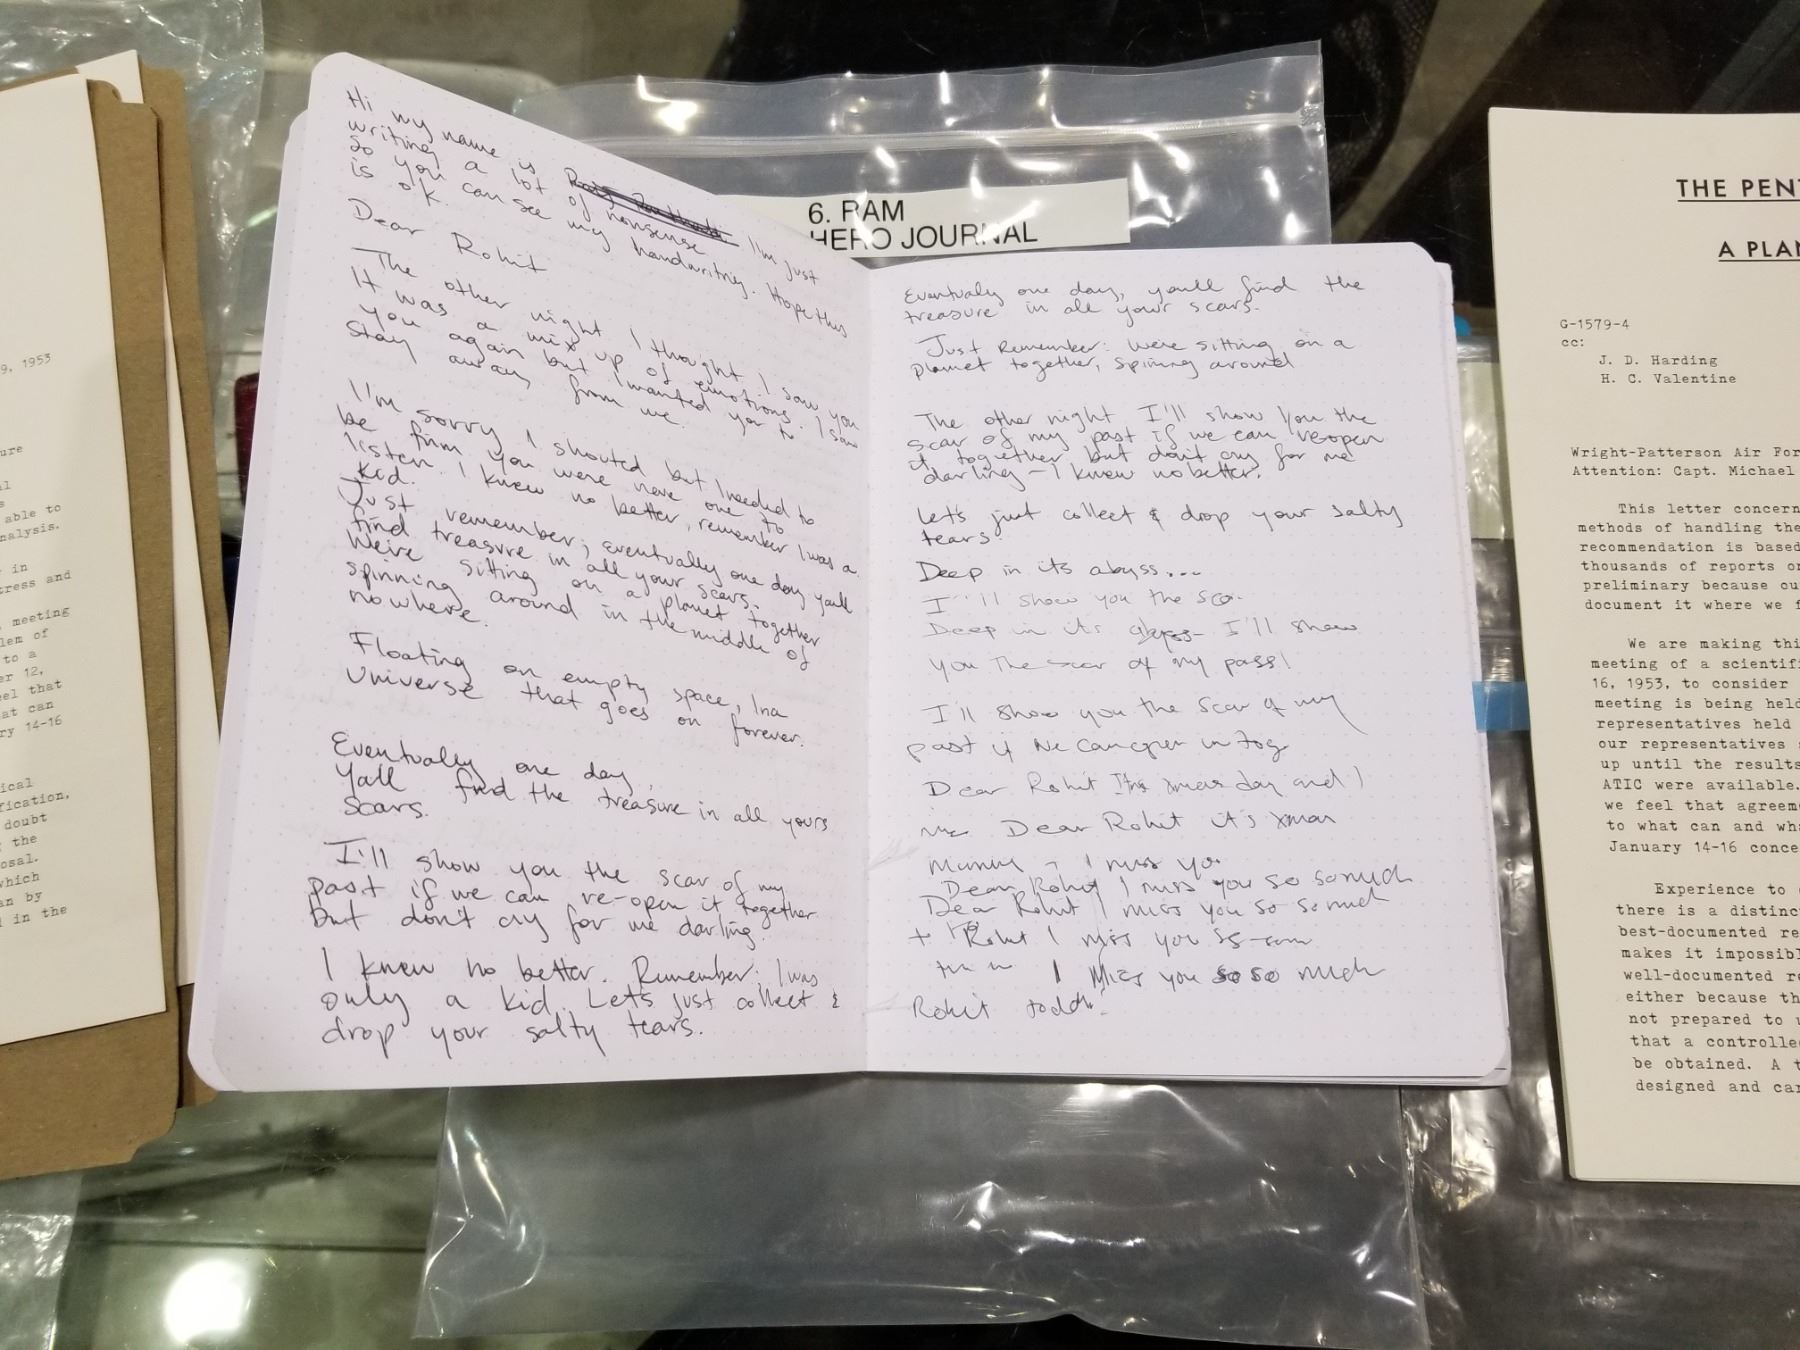 9, 1953
ure
al
s
able to
nalysis.
in
tress and
meeting
lem of
to a
er 12,
eel that
at can
ry 14-16
ical
fication,
doubt
the
osal.
which
an by
d in the
Hi my name is I'm just
writing a lot of nonsense
So you can see my handwriting. Hope this
is ok.
Dear Rohit
The other night I thought I saw you
It was a mix up of emotions. I saw
you again but I wanted you to
stay away from me.
I'm sorry I shouted but I needed to
be firm you were never one to
listen. I knew no better, remember I was a
kid.
Just remember; eventually one day youll
find treasure in all your scars.
We're sitting on a planet together
spinning around in the middle of
nowhere.
Floating on empty space, Ina
universe that goes on forever.
Eventually one day,
Yall find the treasure in all yours
scars.
I'll show you the scar of my
past if we can re-open it together
but don't cry for me darling.
I knew no better. Remember; I was
only a kid. Lets just collect &
drop your salty tears.
6. RAM
HERO JOURNAL
Eventualy one day, youll find the
treasure in all your scars.
Just Remember: We're sitting on a
planet together, spinning around
The other night I'll show you the
scar of my past if we can re-open
it together but don't cry for me
darling - I knew no better.
Let's just collect & drop your salty
tears.
Deep in its abyss...
I'll show you the sca
Deep in its I'll show
you the scar of my past
I'll show you the scar of my
past if we can open
Dear Rohit Its xmas day and I
Dear Rohit it's xmas
I miss you
Dear Rohit I miss you so so much
Dear Rohit I miss you so so much
Rohit I miss you so
I miss you so so much
Rohit
THE PENT
A PLAN
G-1579-4
cc:
J. D. Harding
H. C. Valentine
Wright-Patterson Air For
Attention: Capt. Michael
This letter concern
methods of handling the
recommendation is based
thousands of reports on
preliminary because ou
document it where we f
We are making thi
meeting of a scientifi
16, 1953, to consider
meeting is being held
representatives held
our representatives
up until the results
ATIC were available.
we feel that agreeme
to what can and wha
January 14-16 conce
Experience to
there is a distinc
best-documented re
makes it impossibl
well-documented re
either because th
not prepared to
that a controlle
be obtained. A t
designed and car